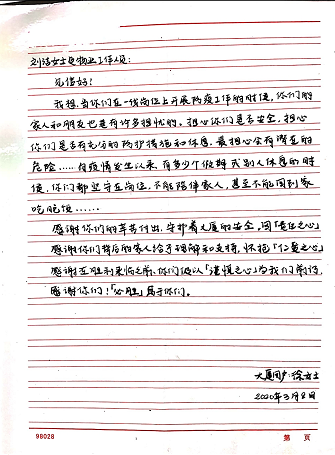 刘洁女士及物业工作人员：
您们好！
我想，当你们在一线岗位上开展防疫工作的时候，你们的
家人和朋友也是有许多担忧的。担心你们是否安全，担心
你们是否有充分的防护措施和休息，最担心会有潜在的
危险……自疫情发生以来，有多少个假期或别人休息的时
候，你们都坚守在岗位，不能陪伴家人，甚至不能回到家
吃晚饭……
感谢你们的辛苦付出，守护着大厦的安全，因「责任之心」
感谢你们背后的家人给予理解和支持，怀抱「仁爱之心」
感谢在胜利来临之前，你们仍以「谨慎之心」为我们前行
感谢你们！「必胜」属于你们。
大厦用户：徐女士
2020年3月8日
98028
第 页